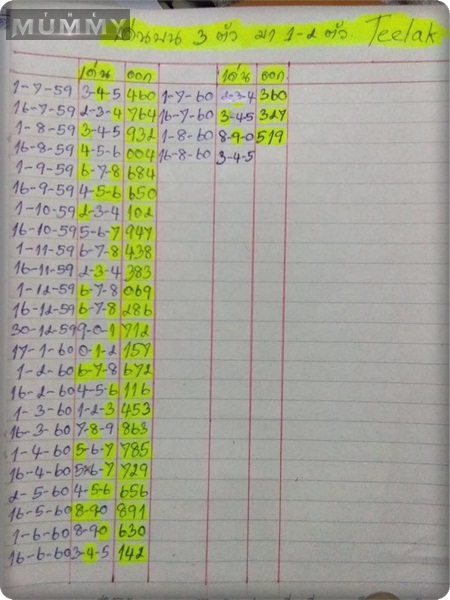 THE
MUMMY
เด่นบน 3 ตัว มา 1-2 ตัว Teelak
เด่น ออก
1-7-59 3-4-5 460
16-7-59 2-3-4 764
1-8-59 3-4-5 932
16-8-59 4-5-6 004
1-9-59 6-7-8 684
16-9-59 4-5-6 650
1-10-59 2-3-4 102
16-10-59 5-6-7 947
1-11-59 6-7-8 438
16-11-59 2-3-4 383
1-12-59 6-7-8 069
16-12-59 6-7-8 286
30-12-59 9-0-1 712
17-1-60 0-1-2 157
1-2-60 6-7-8 672
16-2-60 4-5-6 116
1-3-60 1-2-3 453
16-3-60 7-8-9 863
1-4-60 5-6-7 785
16-4-60 5-6-7 729
2-5-60 4-5-6 656
16-5-60 8-9-0 891
1-6-60 8-9-0 630
16-6-60 3-4-5 142
เด่น ออก
1-7-60 2-3-4 360
16-7-60 3-4-5 327
1-8-60 8-9-0 519
16-8-60 3-4-5